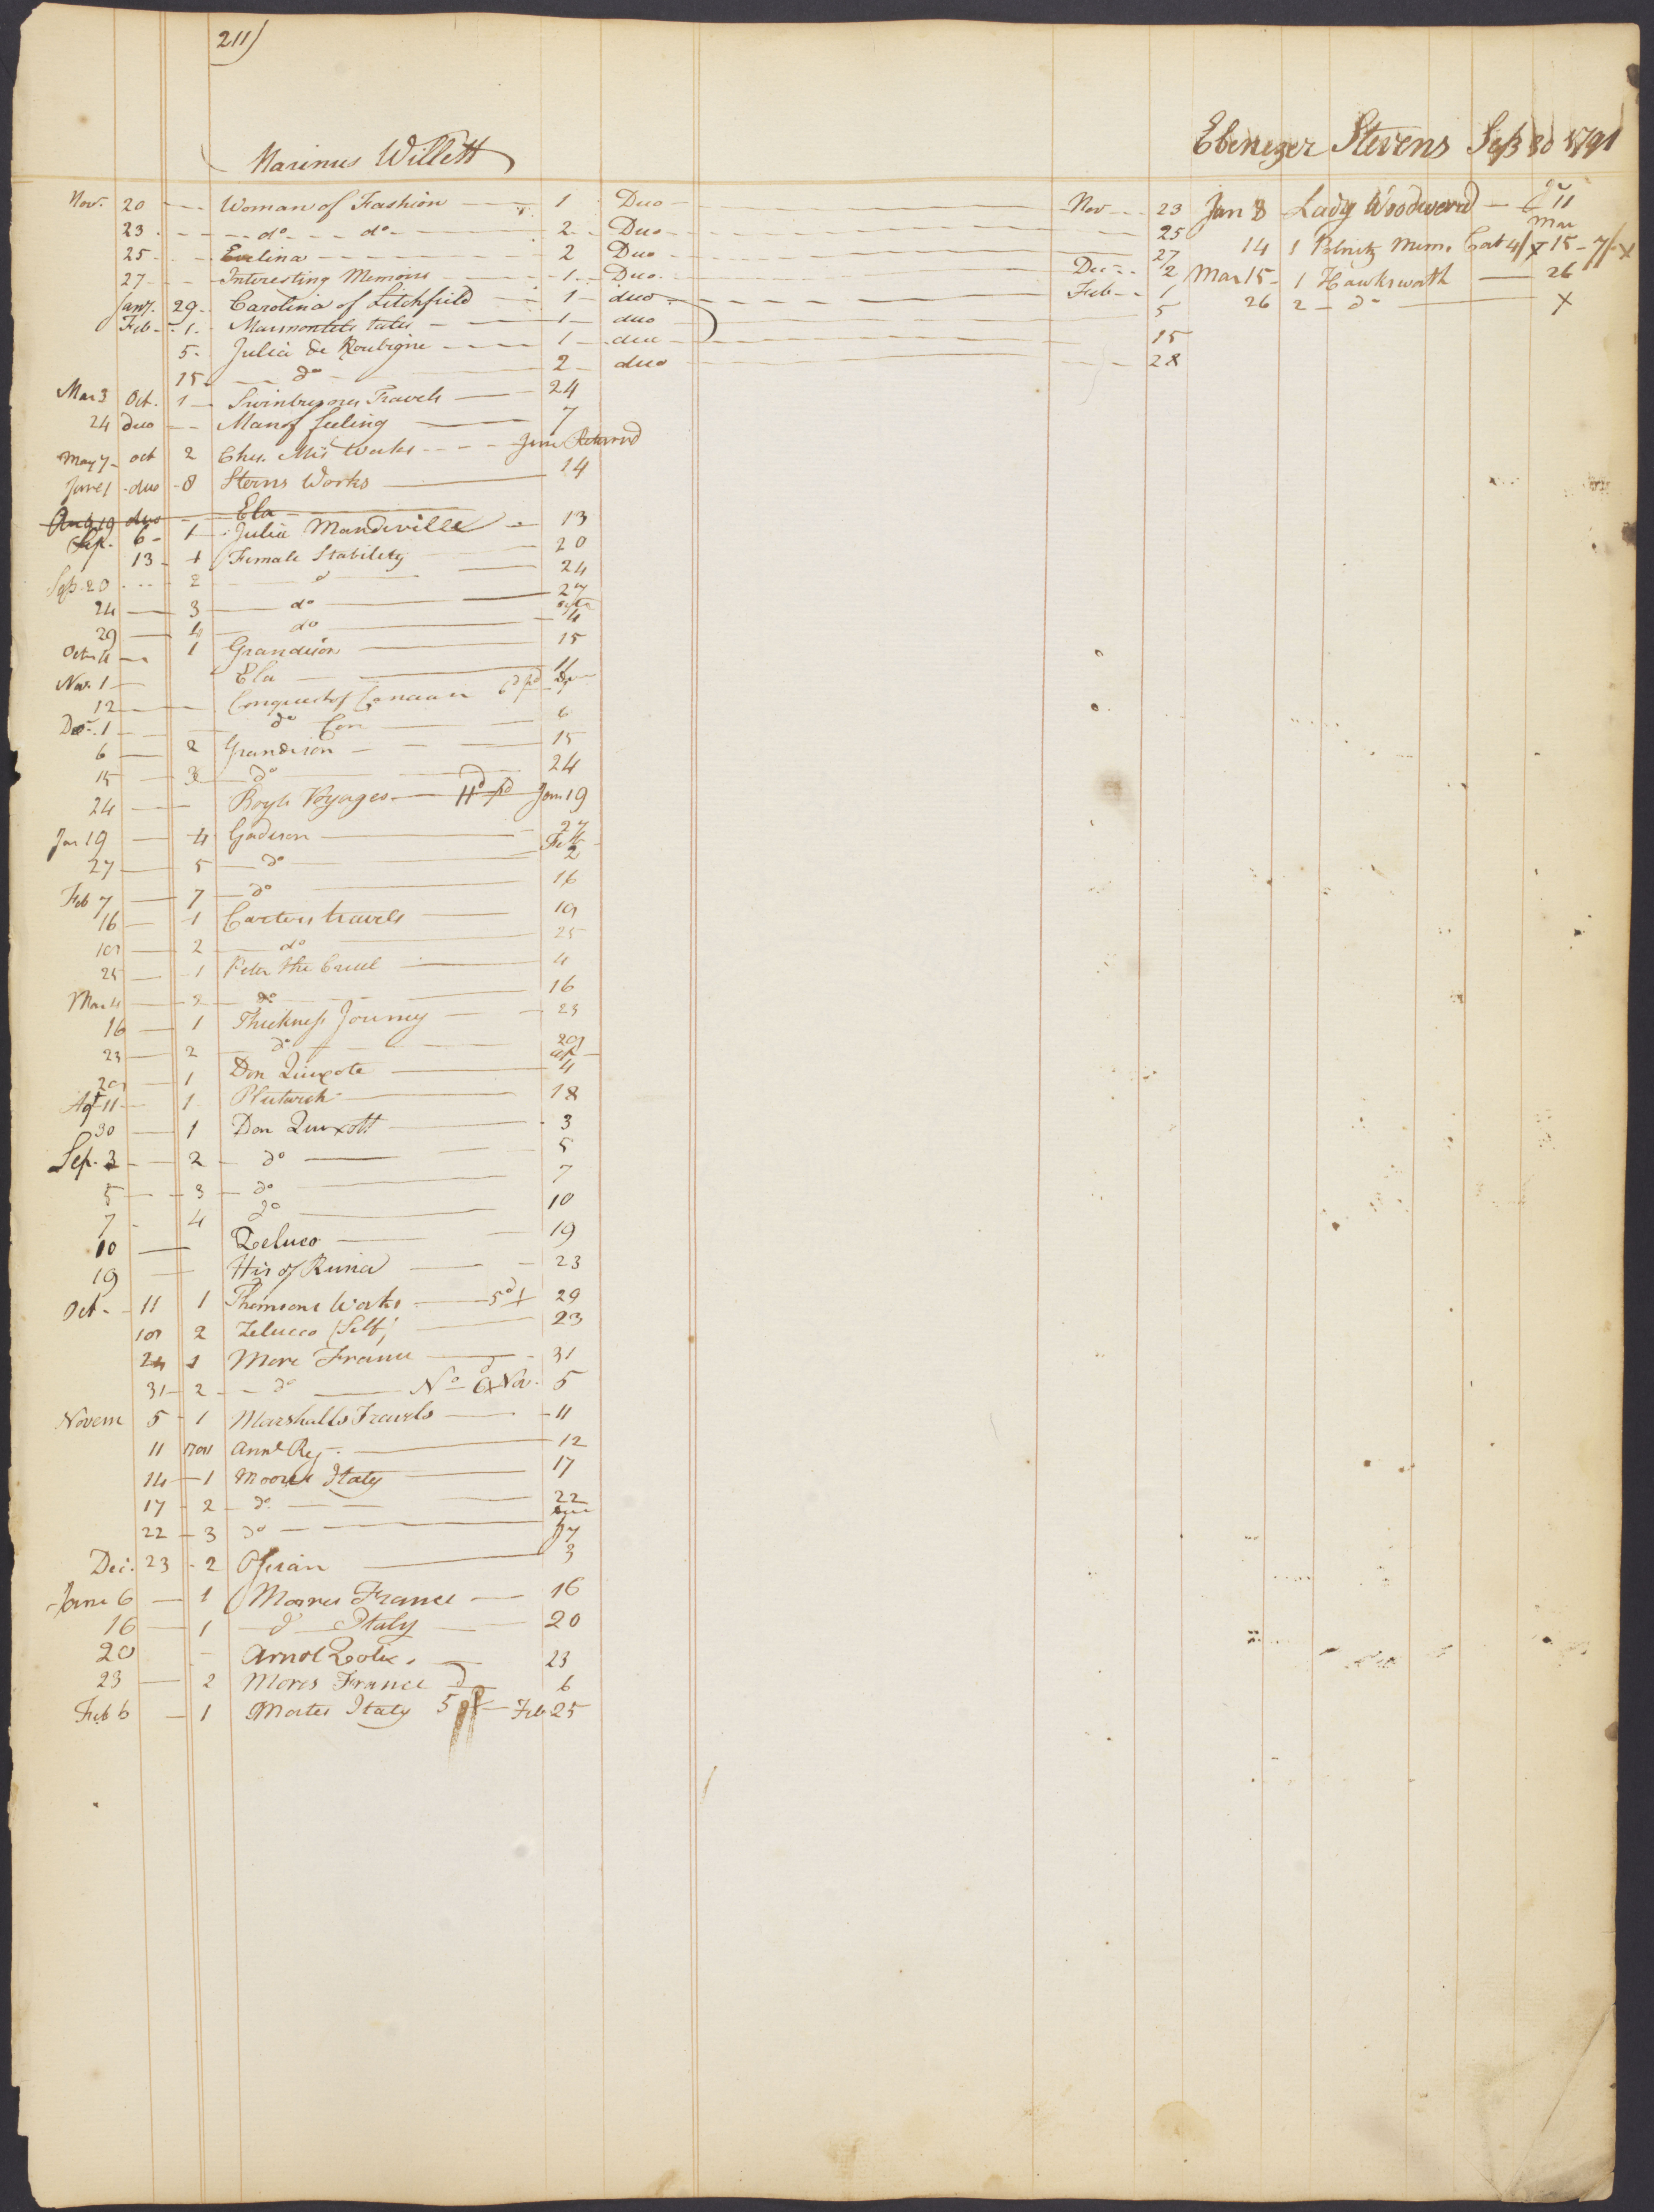 211)
Marinus Willett
Nov. 20 Woman of Fashion 1 Duo Nov 23
23 do do 2 Duo 25
25 Evelina 2 Duo 27
27 Interesting Memoirs 1 Duo Dec 2
Jany. 29 Carolina of Litchfield 1 duo Feb 1
Feb 1 Marmontels tales 1 duo 5
5 Julia de Roubigne 1 duo 15
15 do 2 duo 28
Mar 3 Oct. 1 Travels 24
24 duo Man of feeling 7
May 7 oct 2 Works June Returnd
June 1 duo 8 Sterns Works 14
Aug 19 duo Ela
Sep. 6 1 Julia Mandeville 13
13 1 Female Stability 20
Sep 20 2 do 24
24 3 do 27
29 4 do 4
Oct 4 1 Grandison 15
Nov. 1 Ela 11
12 Conquest of Canaan
Dec. 1 do Con 6
6 2 Grandison 15
15 3 do 24
24 Boyls Voyages 11d pd Jan 19
Jan 19 4 Gadison 27
27 5 do Feb 2
Feb 7 7 do 16
16 1 Carters travels 19
19 2 do 25
25 1 Peter the Cruel 4
Mar 4 2 do 16
16 1 Thickness Journey 23
23 2 do 29
29 1 Don Quixote 4
Agt 11 1 Plutarch 18
30 1 Don Quixott 3
Sep. 3 2 do 5
5 3 do 7
7 4 do 10
10 Zeluco 19
19 His of Rusia 23
Oct. 11 1 Thomsons Works 5d 29
19 2 Zelucco (Self) 23
24 1 More France 31
31 2 do No 6 Nov. 5
Novem 5 1 Marshalls Travels 11
11 Annl Reg. 12
14 1 Moores Italy 17
17 2 do 22
22 3 do
Dec. 23 2 Ossian 3
Jane 6 1 Mores France 16
16 1 do Italy 20
20 Arnot 23
23 2 Mores France 6
Feb 6 1 Italy 5 Feb 25
Ebenezer Stevens Sep 30 1791
Jan 8 Lady Woodword 11
14 1 Polnitz Mem. Cat 4/ Mar 15 7/
Mar 15 1 Hawksworth 26
26 2 do X